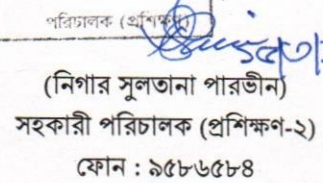 পরিচালক (প্রশিক্ষণ)
(নিগার সুলতানা পারভীন)
সহকারী পরিচালক (প্রশিক্ষণ-২)
ফোন : ৯৫৮৬৫৮৪